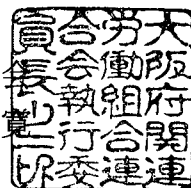 大阪府関連
労働組合連
合会執行委
員長之印
寛